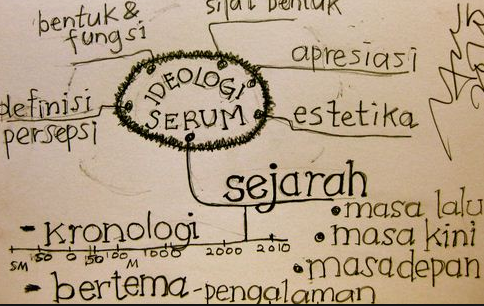 bentuk &
fungsi
sifat bentuk
apresiasi
IDEOLOGI
SERUM
definisi
persepsi
estetika
sejarah
• masa lalu
• masa kini
• masa depan
- kronologi
SM 50 0 50 100 M 1000 2000 2010
- bertema - pengalaman